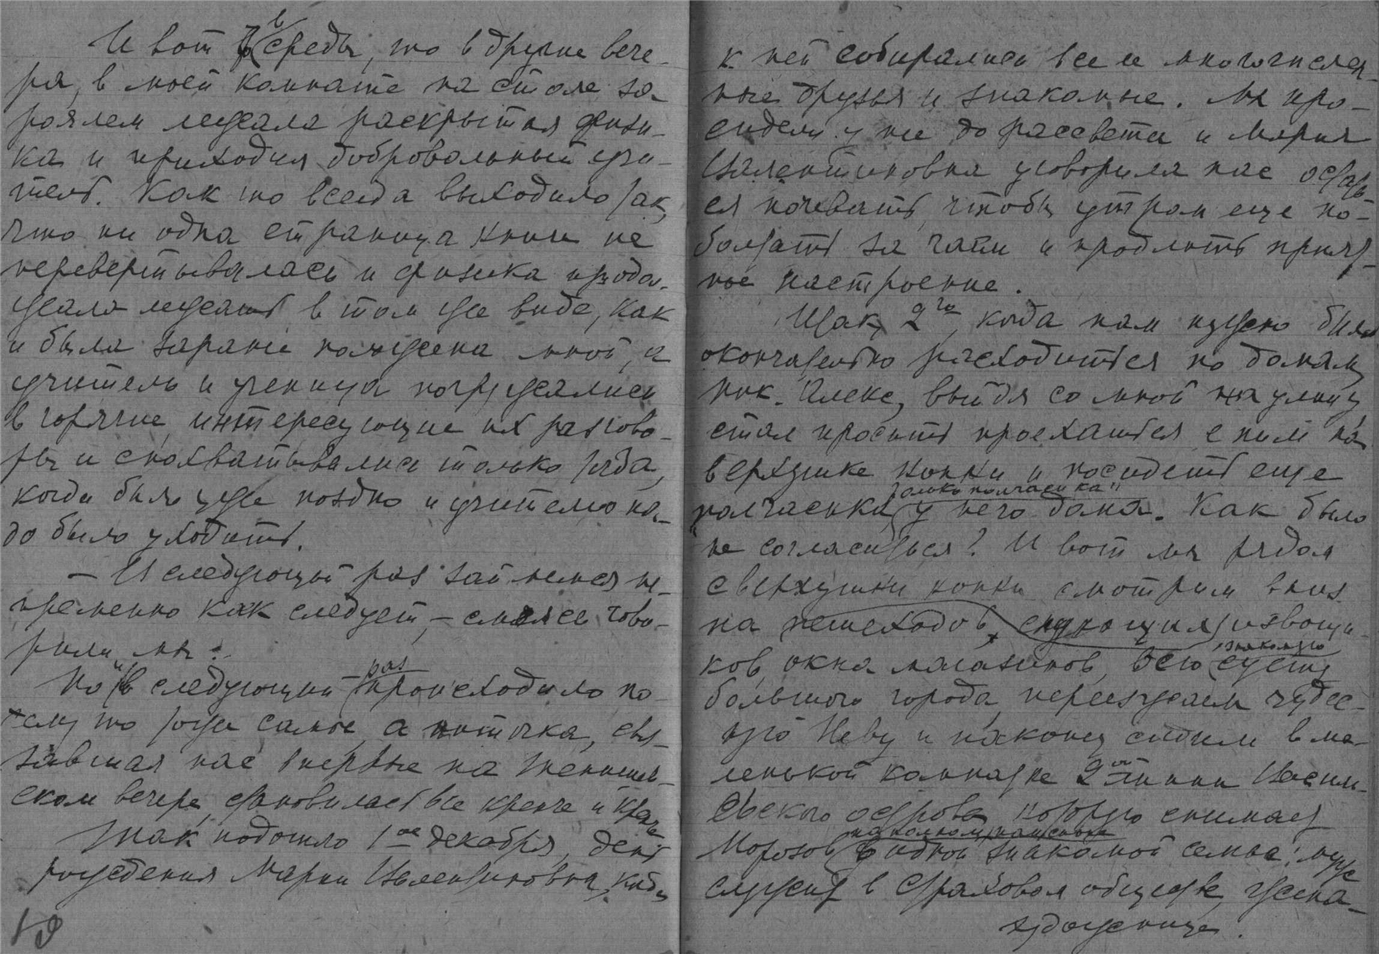 И вот в среды, то в другие вече-
ра, в моей комнате на столе за
роялем лежала раскрытая физи-
ка и приходил добровольный учи-
тель. Как то всегда выходило так,
что ни одна страница книги не
перевертывалась и физика продол-
жала лежать в том же виде, как
и была заранее положена мной, а
учитель и ученица погружались
в горячие, интересующие их разгово-
ры и спохватывались только тогда,
когда было уже поздно и учителю на-
до было уходить.
— И следующий раз займемся не-
пременно как следует, — смеясь гово-
рили мы.
Но в следующий раз происходило по-
чему то тоже самое, а ниточка, свя-
завшая нас впервые на
ском вечере, становилась все крепче и крепче
Так подошло 1ое декабря, день
рождения Марии Валентиновны, когда
19
к ней собирались все ее многочислен-
ные друзья и знакомые. Мы про-
сидели у нее до рассвета и Мария
Валентиновна уговорила нас остать-
ся ночевать, чтобы утром еще по-
болтать за чаем и продлить прият-
ное настроение.
Так 2го, когда нам нужно было
окончательно расходиться по домам,
Ник. Алекс., выйдя со мной на улицу,
стал просить проехаться с ним на
верхушке конки и посидеть еще
только полчасика"
"полчасика у него дома. Как было
не согласиться? И вот мы рядом
с верхушки конки смотрим вниз
на пешеходов, снующих извощи-
ков, окна магазинов, всю знакомую суету
большого города, переезжаем чудес-
ную Неву и наконец сидим в ма-
ленькой комнатке 2ой линии Василь-
евского острова, которую снимает
на полном пансионе
Морозов в одной знакомой семье: муж
служит в страховом обществе, жена-
художница.